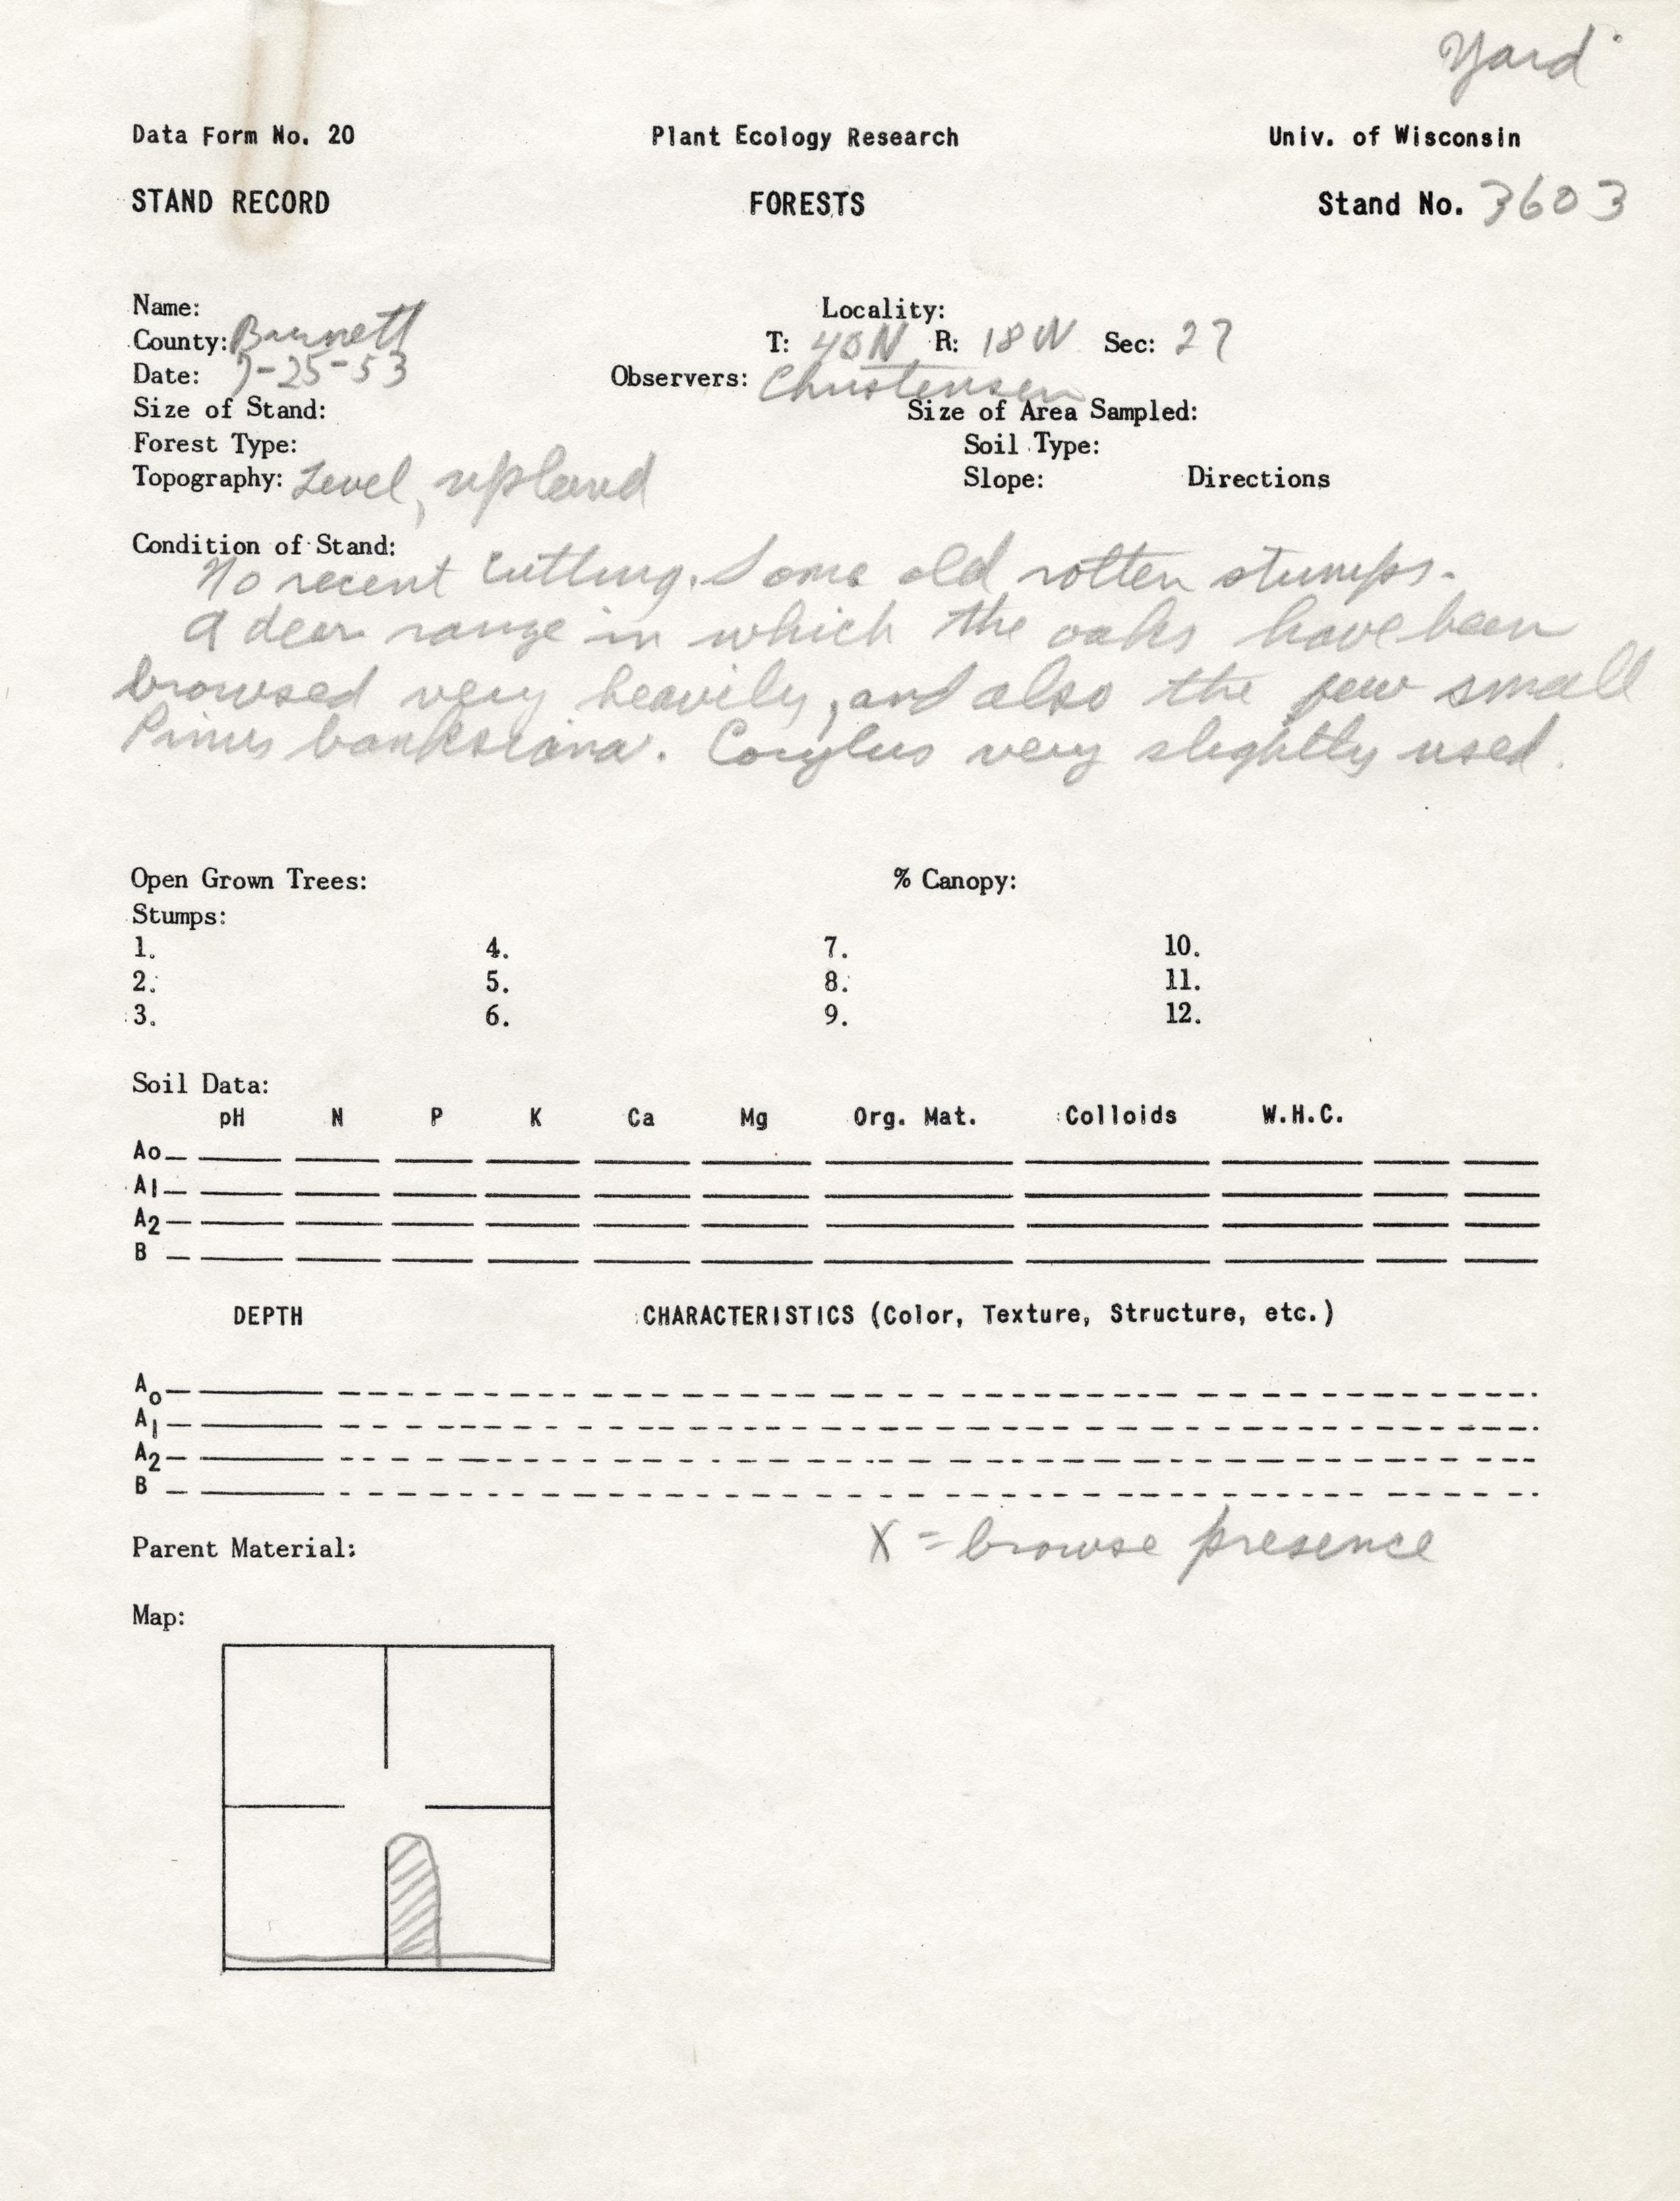 Yard
Data Form No. 20 Plant Ecology Research Univ. of Wisconsin
STAND RECORD FORESTS Stand No. 3603
Name: Locality:
County: Burnett T: 40N R: 18W Sec: 27
Date: 7-25-53 Observers: Christensen
Size of Stand: Size of Area Sampled:
Forest Type: Soil Type:
Topography: Level, upland Slope: Directions
Condition of Stand:
No recent cutting. Some old rotten stumps.
A deer range in which the oaks have been
browsed very heavily, and also the few small
Pinus banksiana. Corylus very slightly used.
Open Grown Trees: % Canopy:
Stumps:
1. 4. 7. 10.
2. 5. 8. 11.
3. 6. 9. 12.
Soil Data:
pH N P K Ca Mg Org. Mat. Colloids W.H.C.
Ao
A1
A2
B
DEPTH CHARACTERISTICS (Color, Texture, Structure, etc.)
Ao
A1
A2
B
Parent Material: X = browse presence
Map: